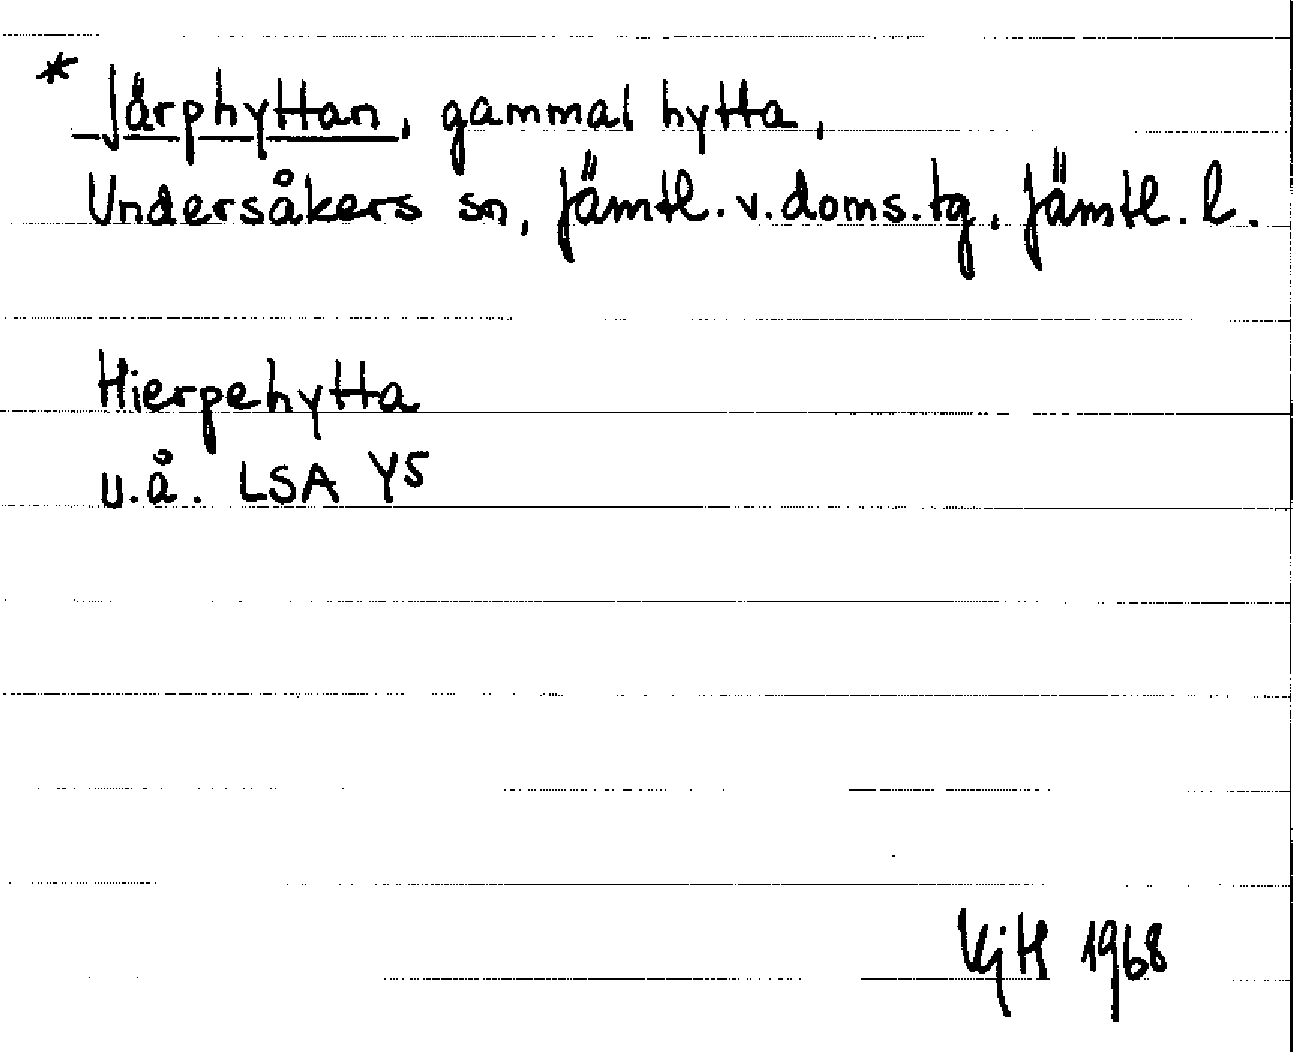 * Järphyttan, gammal hytta,
Undersåkers sn, Jämtl. v. doms. tg. Jämtl. l.
Hierpehytta
u.å. LSA Y5
VjH 1968